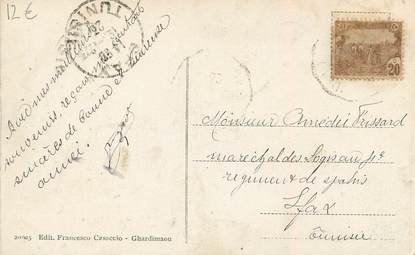 12€
TUNISIE
Avec mes meilleurs
souvenirs, reçois
sincères de bonne et heureuse
année.
20
Monsieur Amédée Frissard
maréchal des logis au 4e
régiment de spahis
Sfax
Tunisie
Edit. Francesco Casuccio - Ghardimaou